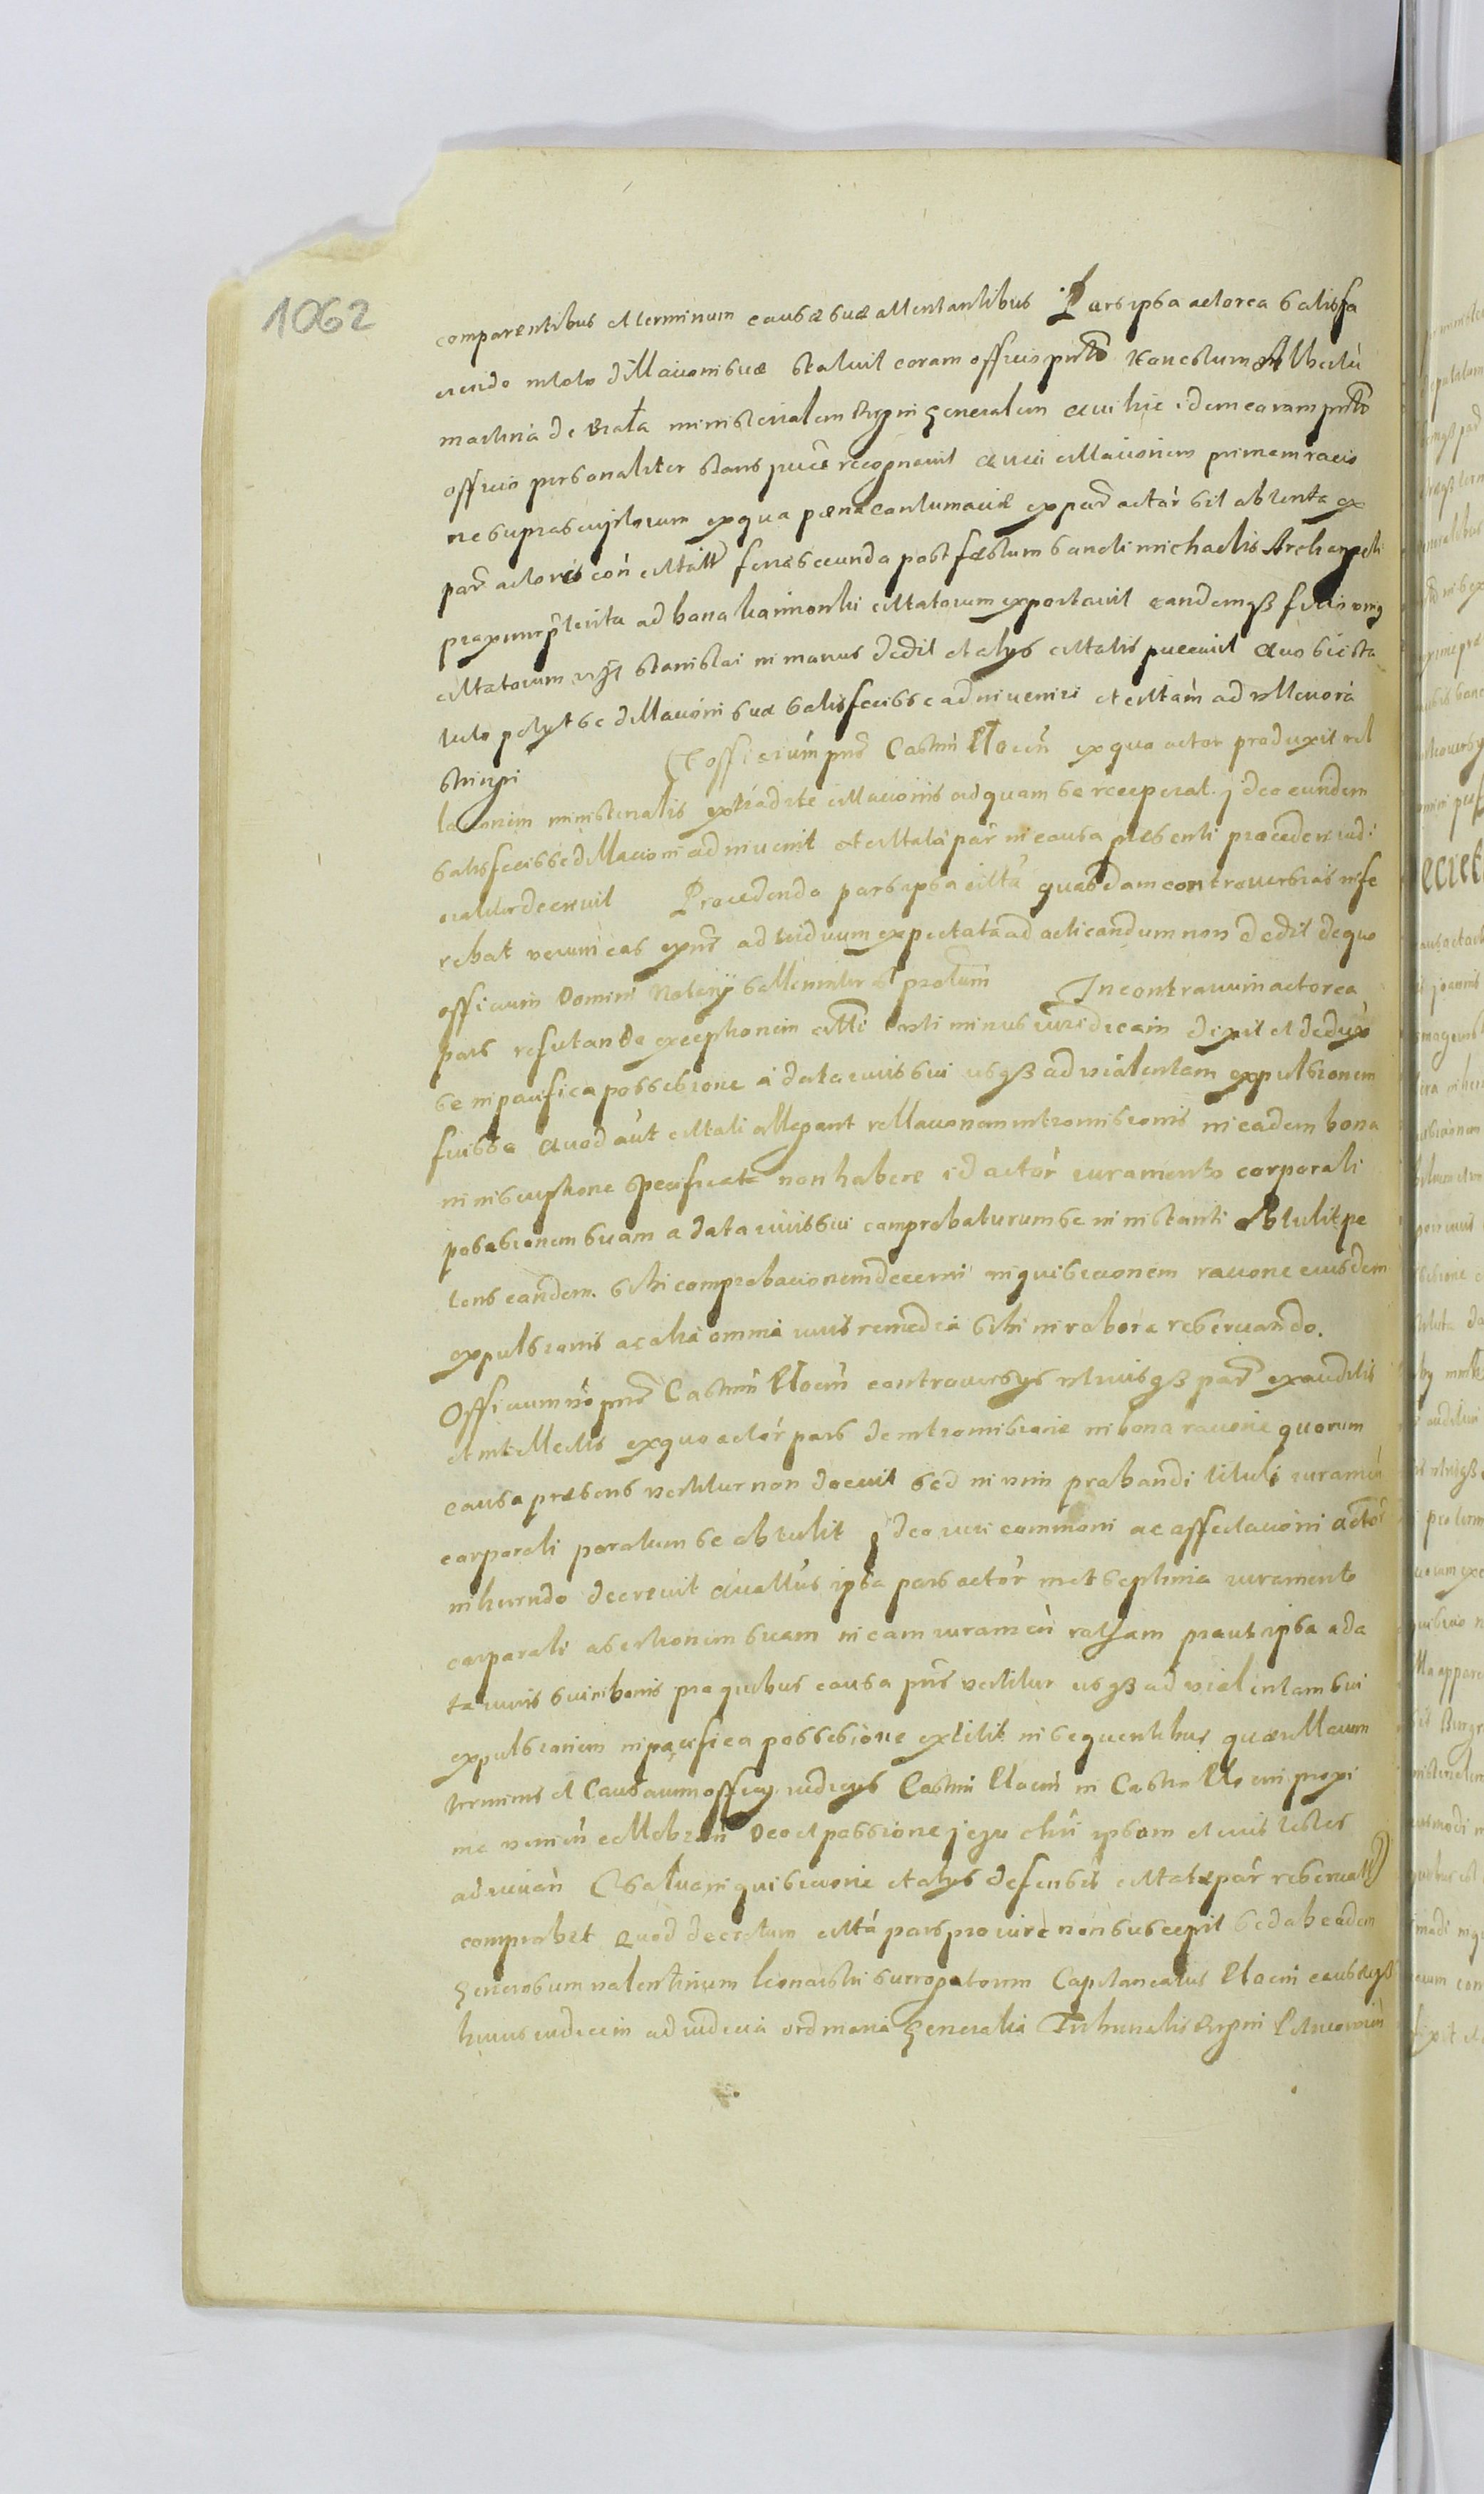 1062
comparentibus et terminum causæ suæ attentantibus Pars ipsa actorea satisfa
ciendo in toto dillacioni suæ statuit coram officio pntō Honestum Albertū
de Biała ministerialem Regni generalem qui hic idem coram pntō
officio personaliter stans pncē recognouit
ne suprascriptorum ex qua pæna contumaciæ ex par actor sit obtenta ex
par actoris con feria secunda post fæstum sancti michaelis Archangeli
proxime pterita ad bona citatorum exportauit eandemqß
citatorum Stanislai in manus dedit et alys citatis publicauit Quo sic sta
tuto petyt se dillacioni suæ satisfecisse adinueniri et
stringi Officium pns Castrn Płocen ex quo actor produxit rel
lacionem ministerialis extradite cittacionis ad quam se receperat. Ideo eundem
satisfecisse dillacioni adinuenit et cittatā par in causa præsenti procedere iudi
cialiter decreuit Procedendo pars ipsa cittā quasdam controuersias infe
rebat verum eas expns ad triduum expectata ad acticandum non dedit de quo
officium Domini Notarÿ sollemniter est protum In contrarium actorea
pars refutando exceptionem minus iuridicam dixit et deduxit
se in pacifica possessione a data iuris sui usqß ad violentam expulsionem
fuisse Quod aut cittati allegant rellacionem intromissionis in eadem bona
in inscriptione specificata non habere id actor iuramento corporali
possesionem suam a data iuris sui comprobaturum se in instanti obtulit pe
tens eandem sibi comprobacionem decerni inquisicionem racione eiusdem
expulsionis ac alia omnia iuris remedia sibi in robore reseruando.
Officium vō pns Castrn Płocen controuersys utriusqß par exauditis
et intellectis ex quo actor pars de intromissione in bona racione quorum
causa præsens vertitur non docuit sed in vim probandi tituli iuramen
corporali paratum se obtulit Ideo iuri communi ac affectacioni actor
inhærendo decreuit Quattus ipsa pars actor met septima iuramento
corporali assertionem suam in eam iuramen prout ipsa a da
ta iuris sui in bonis pro quibus causa pns vertitur usqß ad violentam sui
expulsionem in pacifica possesione extitit in sequentibus quærellarum
terminis et Causarum officy iudicys Castrn Płocen in Castro Płocen proxi
me venien cellebran Deo et passione jesu chri ipsam et eius testes
adiuuan (salua inquisicione et alys defensis cittatæ par reseruatt)
comprobet Quod decretum cittā pars pro iure non suscepit sed ab eadem
Generosum valentinum surrogatorem Capitaneatus Płocen causæqß
huius iudicem ad iudicia ordinaria Generalia Tribunalis Regni Petricouien